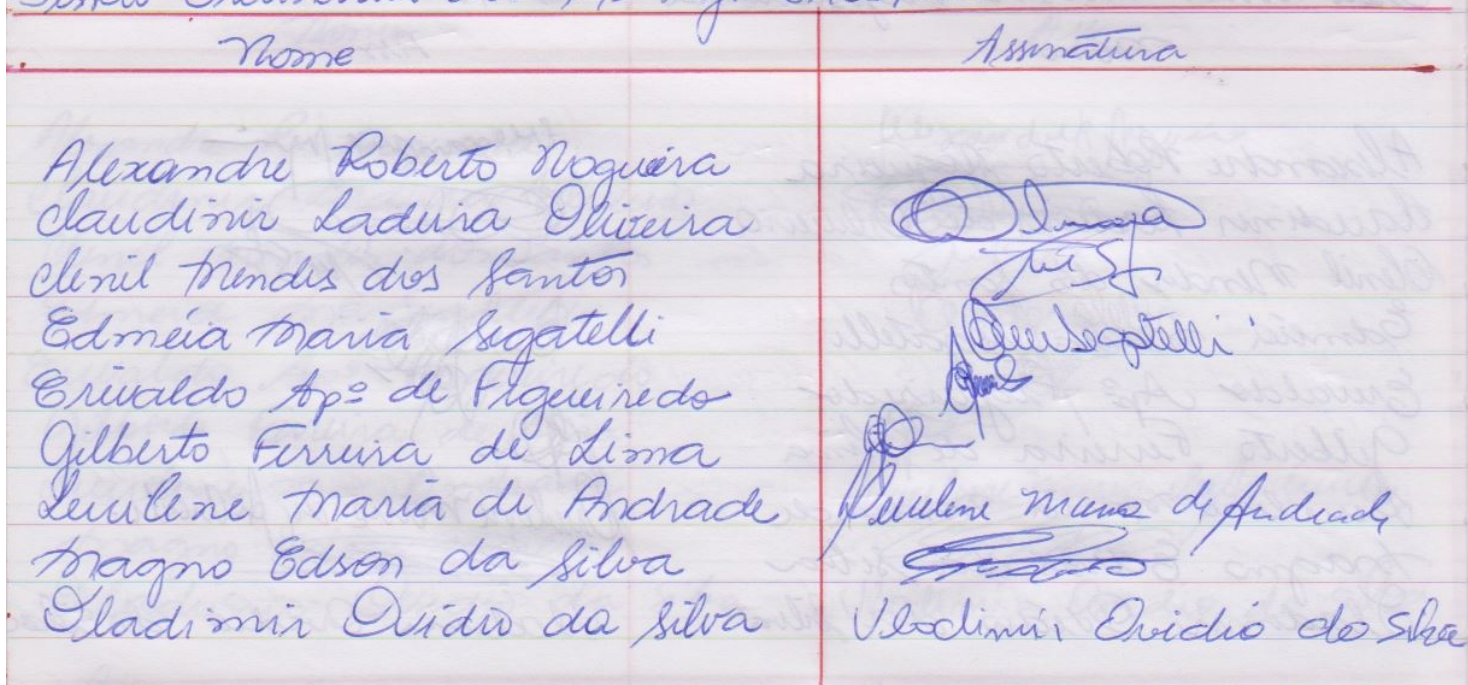 Nome Assinatura
Alexandre Roberto Nogueira
Claudinir Ladeira Oliveira
Clenil Mendes dos Santos
Edméia Maria Segatelli Segatelli
Erivaldo Apº de Figueiredo
Gilberto Ferreira de Lima
Leucilene Maria de Andrade Leucilene Maria de Andrade
Magno Edson da Silva
Vladimir Ovidio da Silva Vladimir Ovidio da Silva